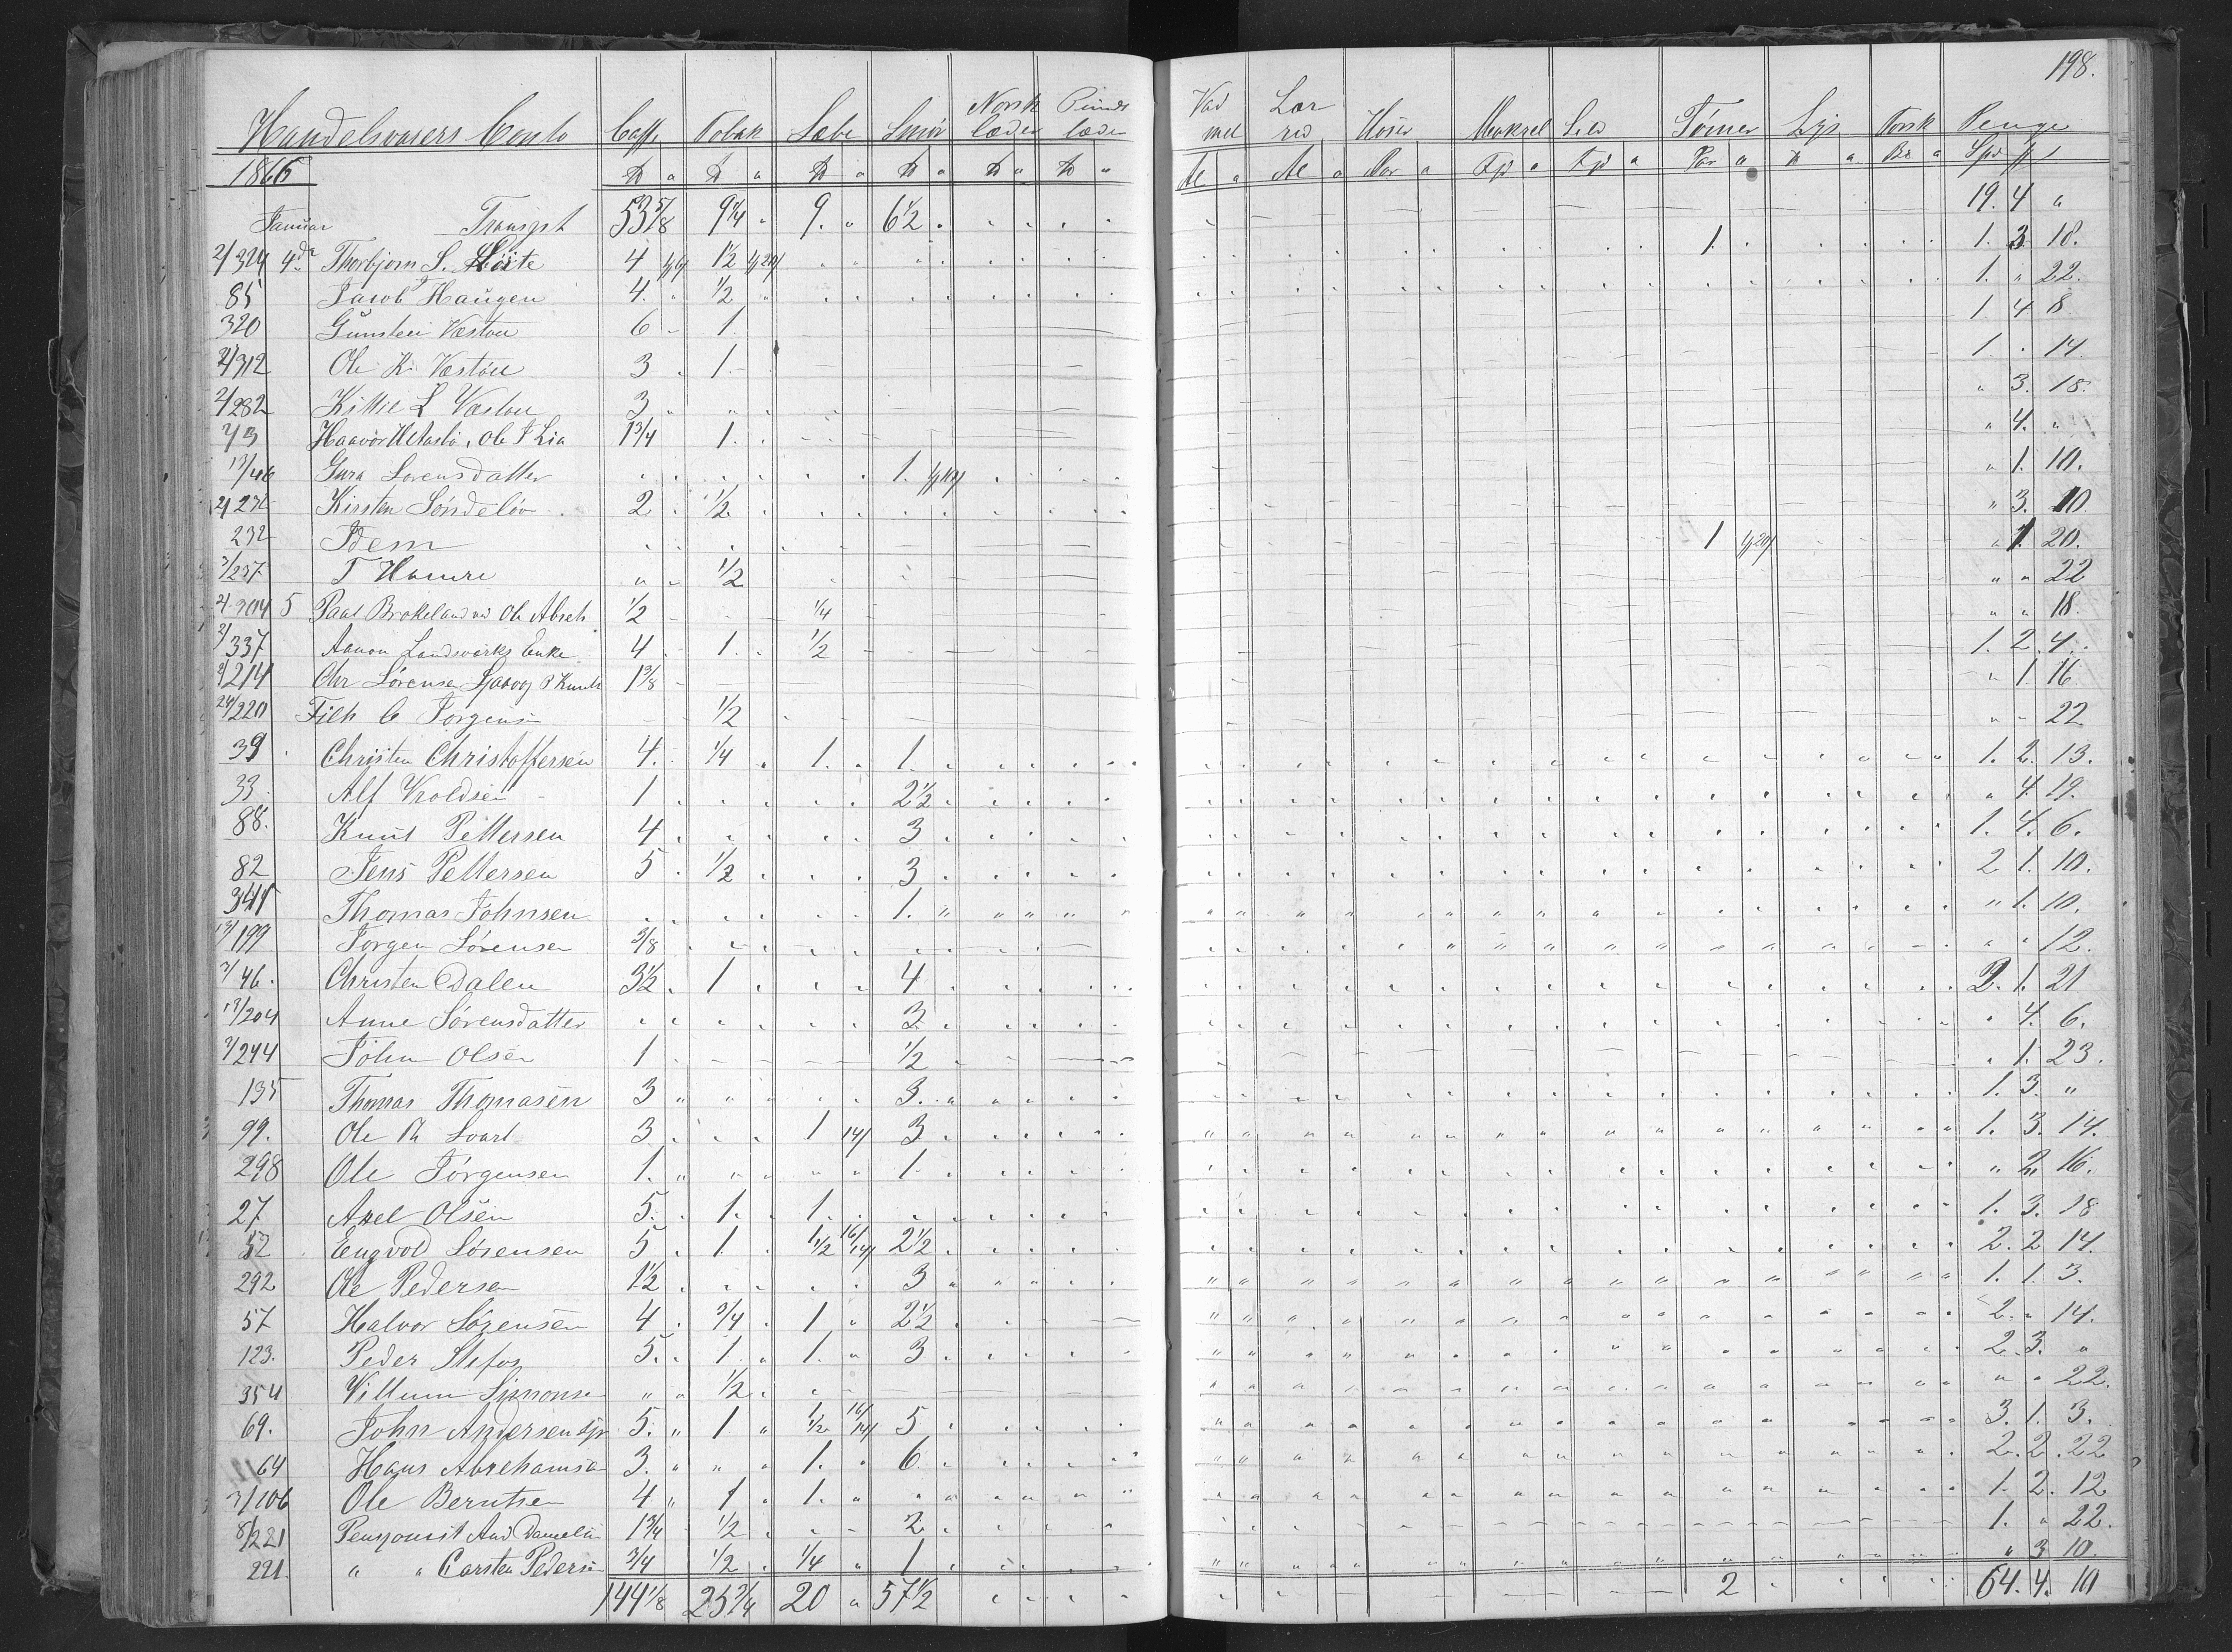 198.
Handelsvarers Conto Caffe Tobak Sæbe Smör Norsk læder Punds læder Vad mel Lær red Hoser Makrel Sild Tömer Lys Torsk Penge
1866 ℔ a ℔ a ℔ a ℔ a ℔ a ℔ a Al a Al a Par a a a Par a ℔ a a Spd
Januar Transpt 53 5/8 9 1/4 9. 6 1/2 19. 4 "
2/324 4de Thorbjorn S. 4 1/2 1. 1. 3. 18.
85 Jacob Haugen 4. 1/2 1. " 22.
320 Gunsten Væstøu 6 1. 1 4 8
2/312 Ole K. Væstøu 3 1. 1. . 14.
2/282 Kittil L Væstøu 3 " 3. 18.
2/3 Haavor , Ole T Lia 1 3/4 1. " 4. "
13/46 Gura Lorensdatter 1. " 1. 10.
2/232 Kirsten Söndeløv 2. 1/2 " 3. 10.
232 Idem 1 " 1. 20.
3/237 T Hamre 1/2 " " 22
4 304 5 Paal Brokeland ved Ole Abrah 1/2 1/4 " " 18.
2/337 Aanon Landsværks Enke 4 1. 1/2 1. 2. 4.
2/214 Chr Sörensen 1 3/8 1. 16
24/220 C Jorgensen 1/2 " " 22
39 Christen Christoffersen 4. 1/4 1. 1. 1. 2. 13.
33. Alf Kroldsen 1 2 1/2 " 4. 19.
88. Knut Pettersen 4 3 1. 4. 6.
82 Jens Pettersen 5 1/2 3 2 1. 10.
341 Thomas Johnsen 1. " 1. 10.
13/199 Jorgen Sörensen 3/8 " " 12.
3/46. Christen Dalen 3 1/2 1 4 2. 1. 21
13/204 Anne Sörensdatter 3 " 4. 6.
2/244 John Olsen 1 1/2 " 1. 23.
135 Thomas Thomasen 3 3. 1. 3. "
99. Ole Svart 3 1 14/ 3 1. 3. 14.
298 Ole Jørgensen 1. 1. " 2. 16.
27 Axel Olsen 5. 1. 1. 1. 3. 18
52 Engvold Sörensen 5. 1. 1 1/2 16/ 14/ 2 1/2 2. 2 14.
292 Ole Pedersen 1 1/2 3 1. 1. 3.
57 Halvor Sörensen 4 3/4 1 2 1/2 2. " 14.
123. Peder Stefos 5. 1. 1. 3 2. 3. "
354 Villum Simonsen " 1/2 " " 22.
69. John Andersen 5. 1 1 1/2 16/ 14/ 5 3. 1. 3.
64 Hans Abrehamsen 3. " 1. 6 2. 2. 22
3/106 Ole Berntsen 4 1 1. 1. 2. 12
8/221 Pensjonist And Danielsen 1 3/4 1/2 2. 1. " 22.
221. " " Carsten Pedersen 3/4 1/2 1/4 1 " 3 10.
144 1/8 25 3/4 20 " 57 1/2 2 64. 4. 10